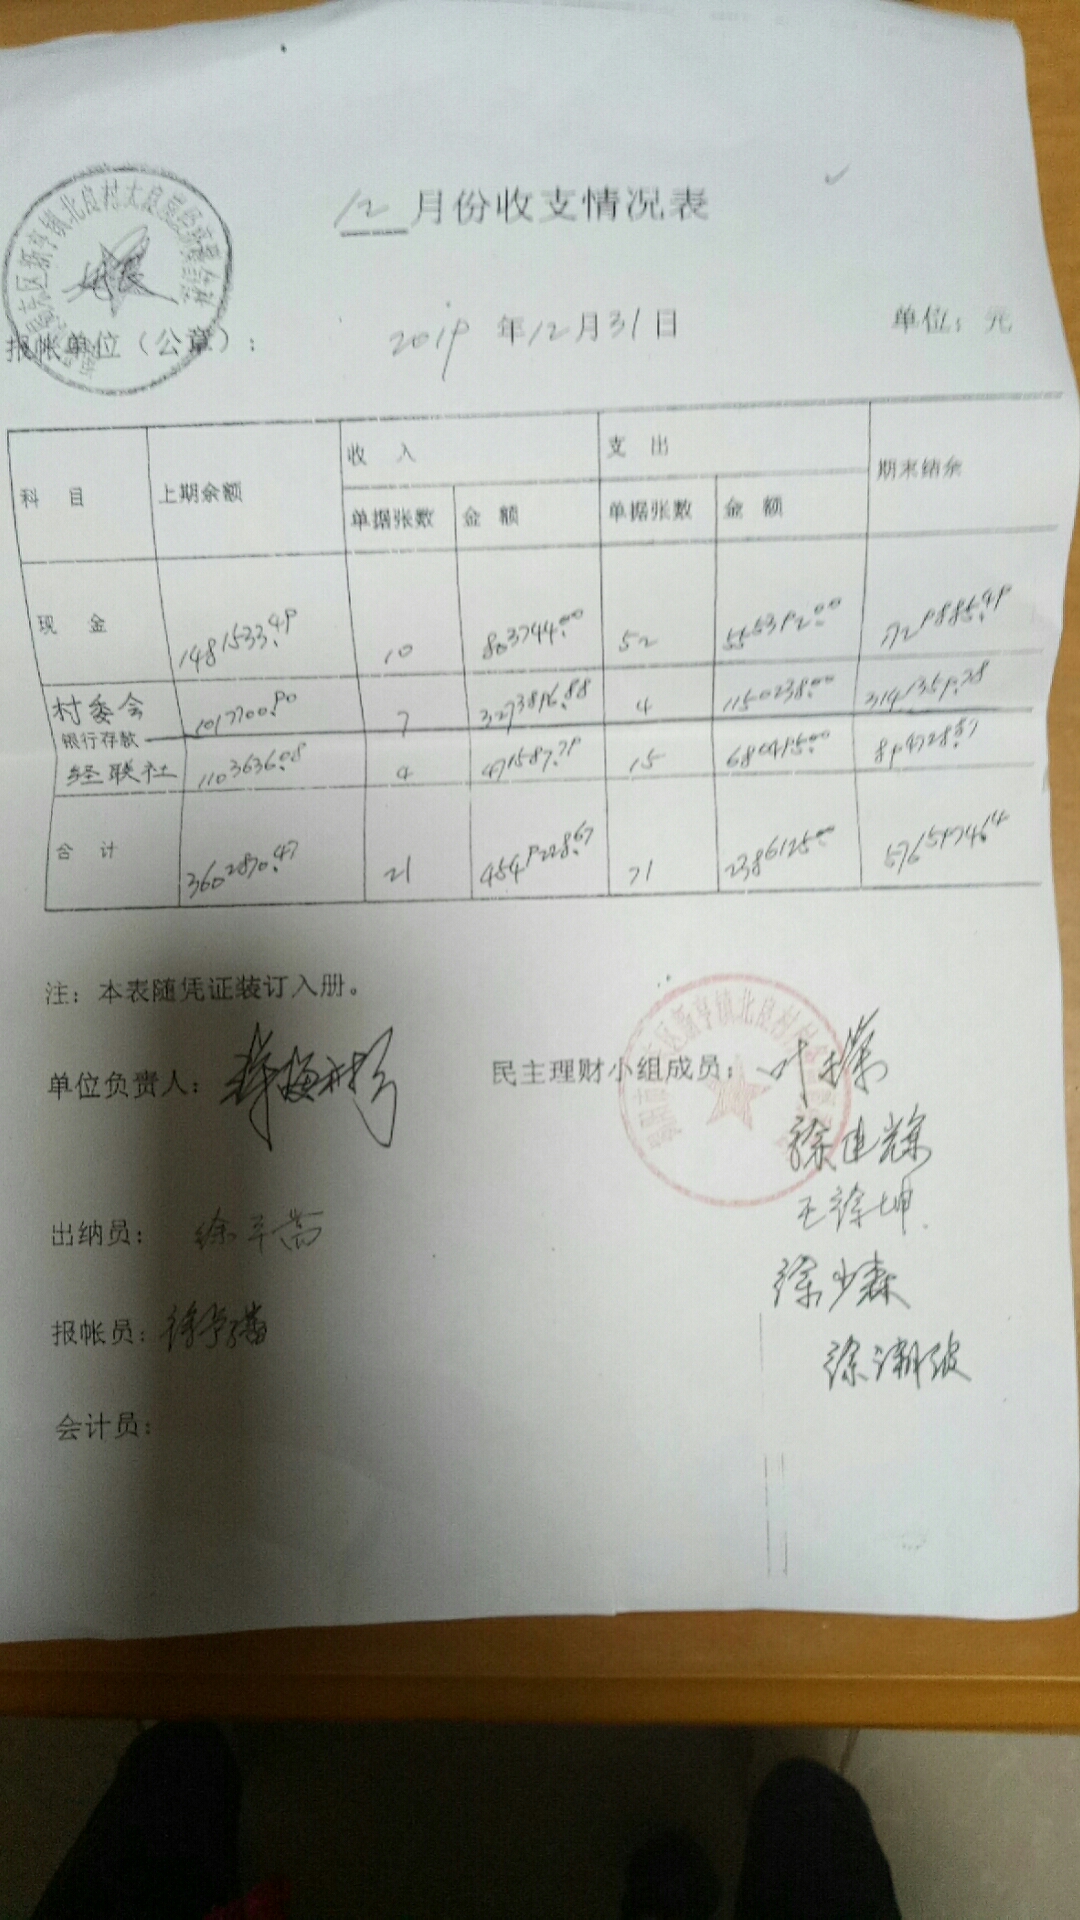 12月份收支情况表
报帐单位（公章）：
2019年12月31日
单位：元
科 目 上期余额 收 入 支 出 期末结余
单据张数 金 额 单据张数 金 额
现 金 1481533.49 10 803744.00 52 555392.00 1729885.49
村委会 1017700.90 7 3273896.88 4 1150238.00 3141359.78
银行存款
经联社 1103636.08 4 471587.79 15 680495.00 894728.87
合 计 3602870.47 21 4549228.67 71 2386125.00 5765974.14
注：本表随凭证装订入册。
单位负责人：
民主理财小组成员：
徐建辉
王徐坤
出纳员：
徐少森
报帐员：
徐潮波
会计员：